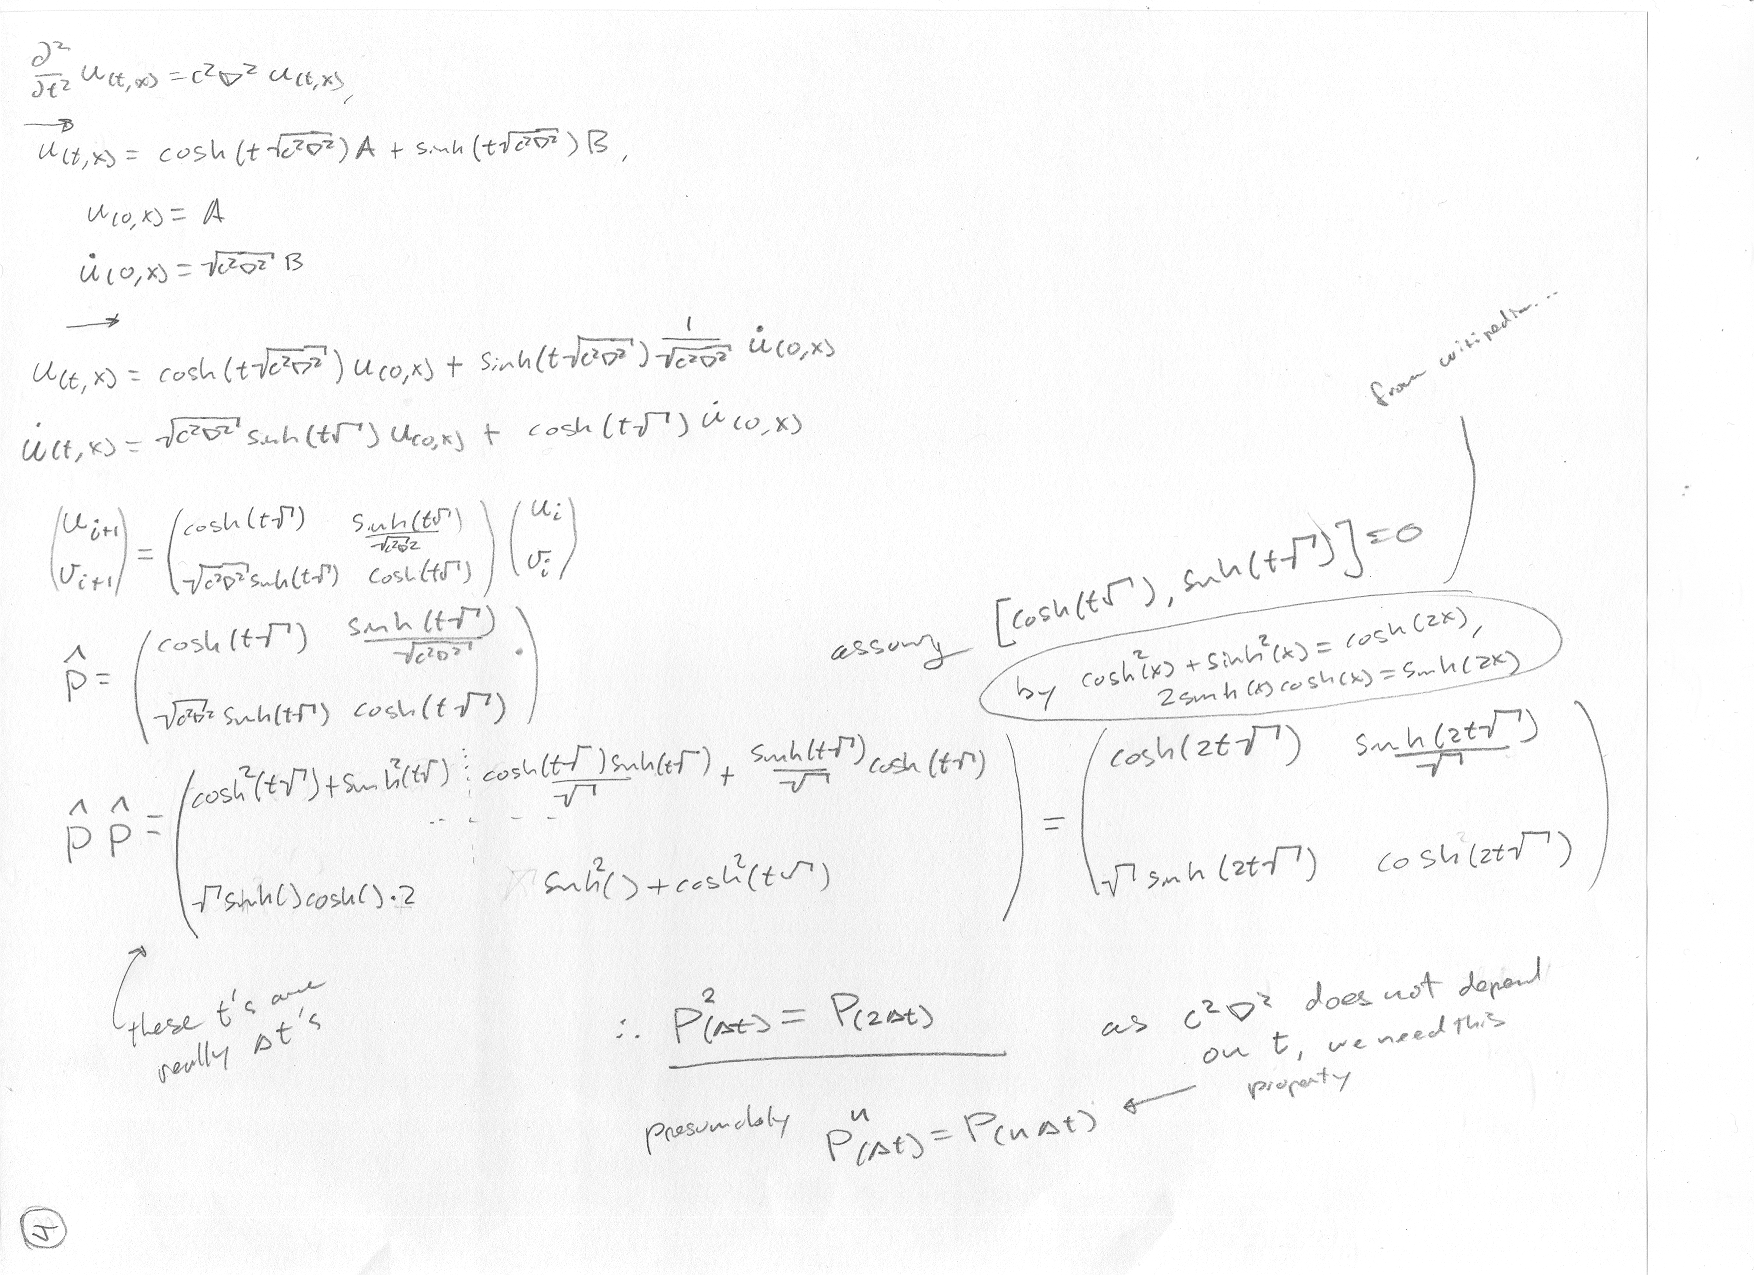 ∂²/∂t² u(t,x) = c²∇² u(t,x),
→
u(t,x) = cosh(t√(c²∇²)) A + sinh(t√(c²∇²)) B,
u(0,x) = A
u̇(0,x) = √(c²∇²) B
→
u(t,x) = cosh(t√(c²∇²)) u(0,x) + sinh(t√(c²∇²)) 1/√(c²∇²) u̇(0,x)
u̇(t,x) = √(c²∇²) sinh(t√) u(0,x) + cosh(t√) u̇(0,x)
from wikipedia...
(u_{i+1} ; v_{i+1}) = (cosh(t√) sinh(t√)/√(c²∇²) ; √(c²∇²) sinh(t√) cosh(t√)) (u_i ; v_i)
assuming [cosh(t√), sinh(t√)] = 0
by cosh²(x) + sinh²(x) = cosh(2x),
2sinh(x)cosh(x) = sinh(2x)
p̂ = (cosh(t√) sinh(t√)/√(c²∇²) ; √(c²∇²) sinh(t√) cosh(t√))
p̂ p̂ = (cosh²(t√) + sinh²(t√) cosh(t√)sinh(t√)/√ + sinh(t√)/√ cosh(t√) ; √ sinh()cosh()·2 sinh²() + cosh²(t√)) = (cosh(2t√) sinh(2t√)/√ ; √ sinh(2t√) cosh(2t√))
these t's are
really Δt's
∴ P²(Δt) = P(2Δt)
as c²∇² does not depend
on t, we need this
property
presumably Pⁿ(Δt) = P(nΔt) ←
5